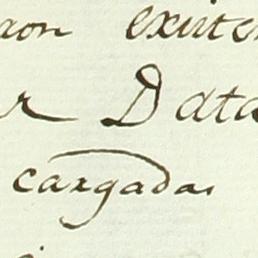 ron existe
r Data
cargadas